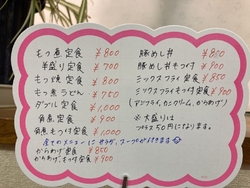 もつ煮定食 ¥800
半盛り定食 ¥700
もつ焼定食 ¥800
もつ煮うどん ¥750
ダブル定食 ¥1,000
角煮定食 ¥900
角煮もつ付定食 ¥1,000
豚めし丼 ¥850
豚めし丼もつ付 ¥900
ミックスフライ定食 ¥850
ミックスフライもつ付定食 ¥900
(アジフライ、カニクリーム、からあげ)
※大盛りは
プラス50円になります。
全てのメニューにサラダ、スープが付きます
からあげ定食 ¥850
からあげもつ付定食 ¥900